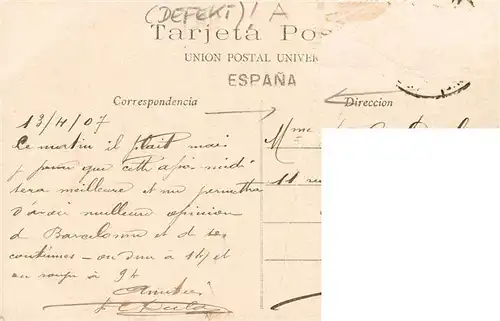 (DEFEKT)! A
Tarjeta Pos
UNION POSTAL UNIVER
ESPAÑA
Correspondencia
Direccion
13/4/07
Ce matin il plait mais
je pense que cette après-midi
sera meilleure et me permettra
d'avoir meilleure opinion
d Barcelone et de ses
coutumes - on dine à 1h/ et
on soupe à 9h
Mme
11 rue